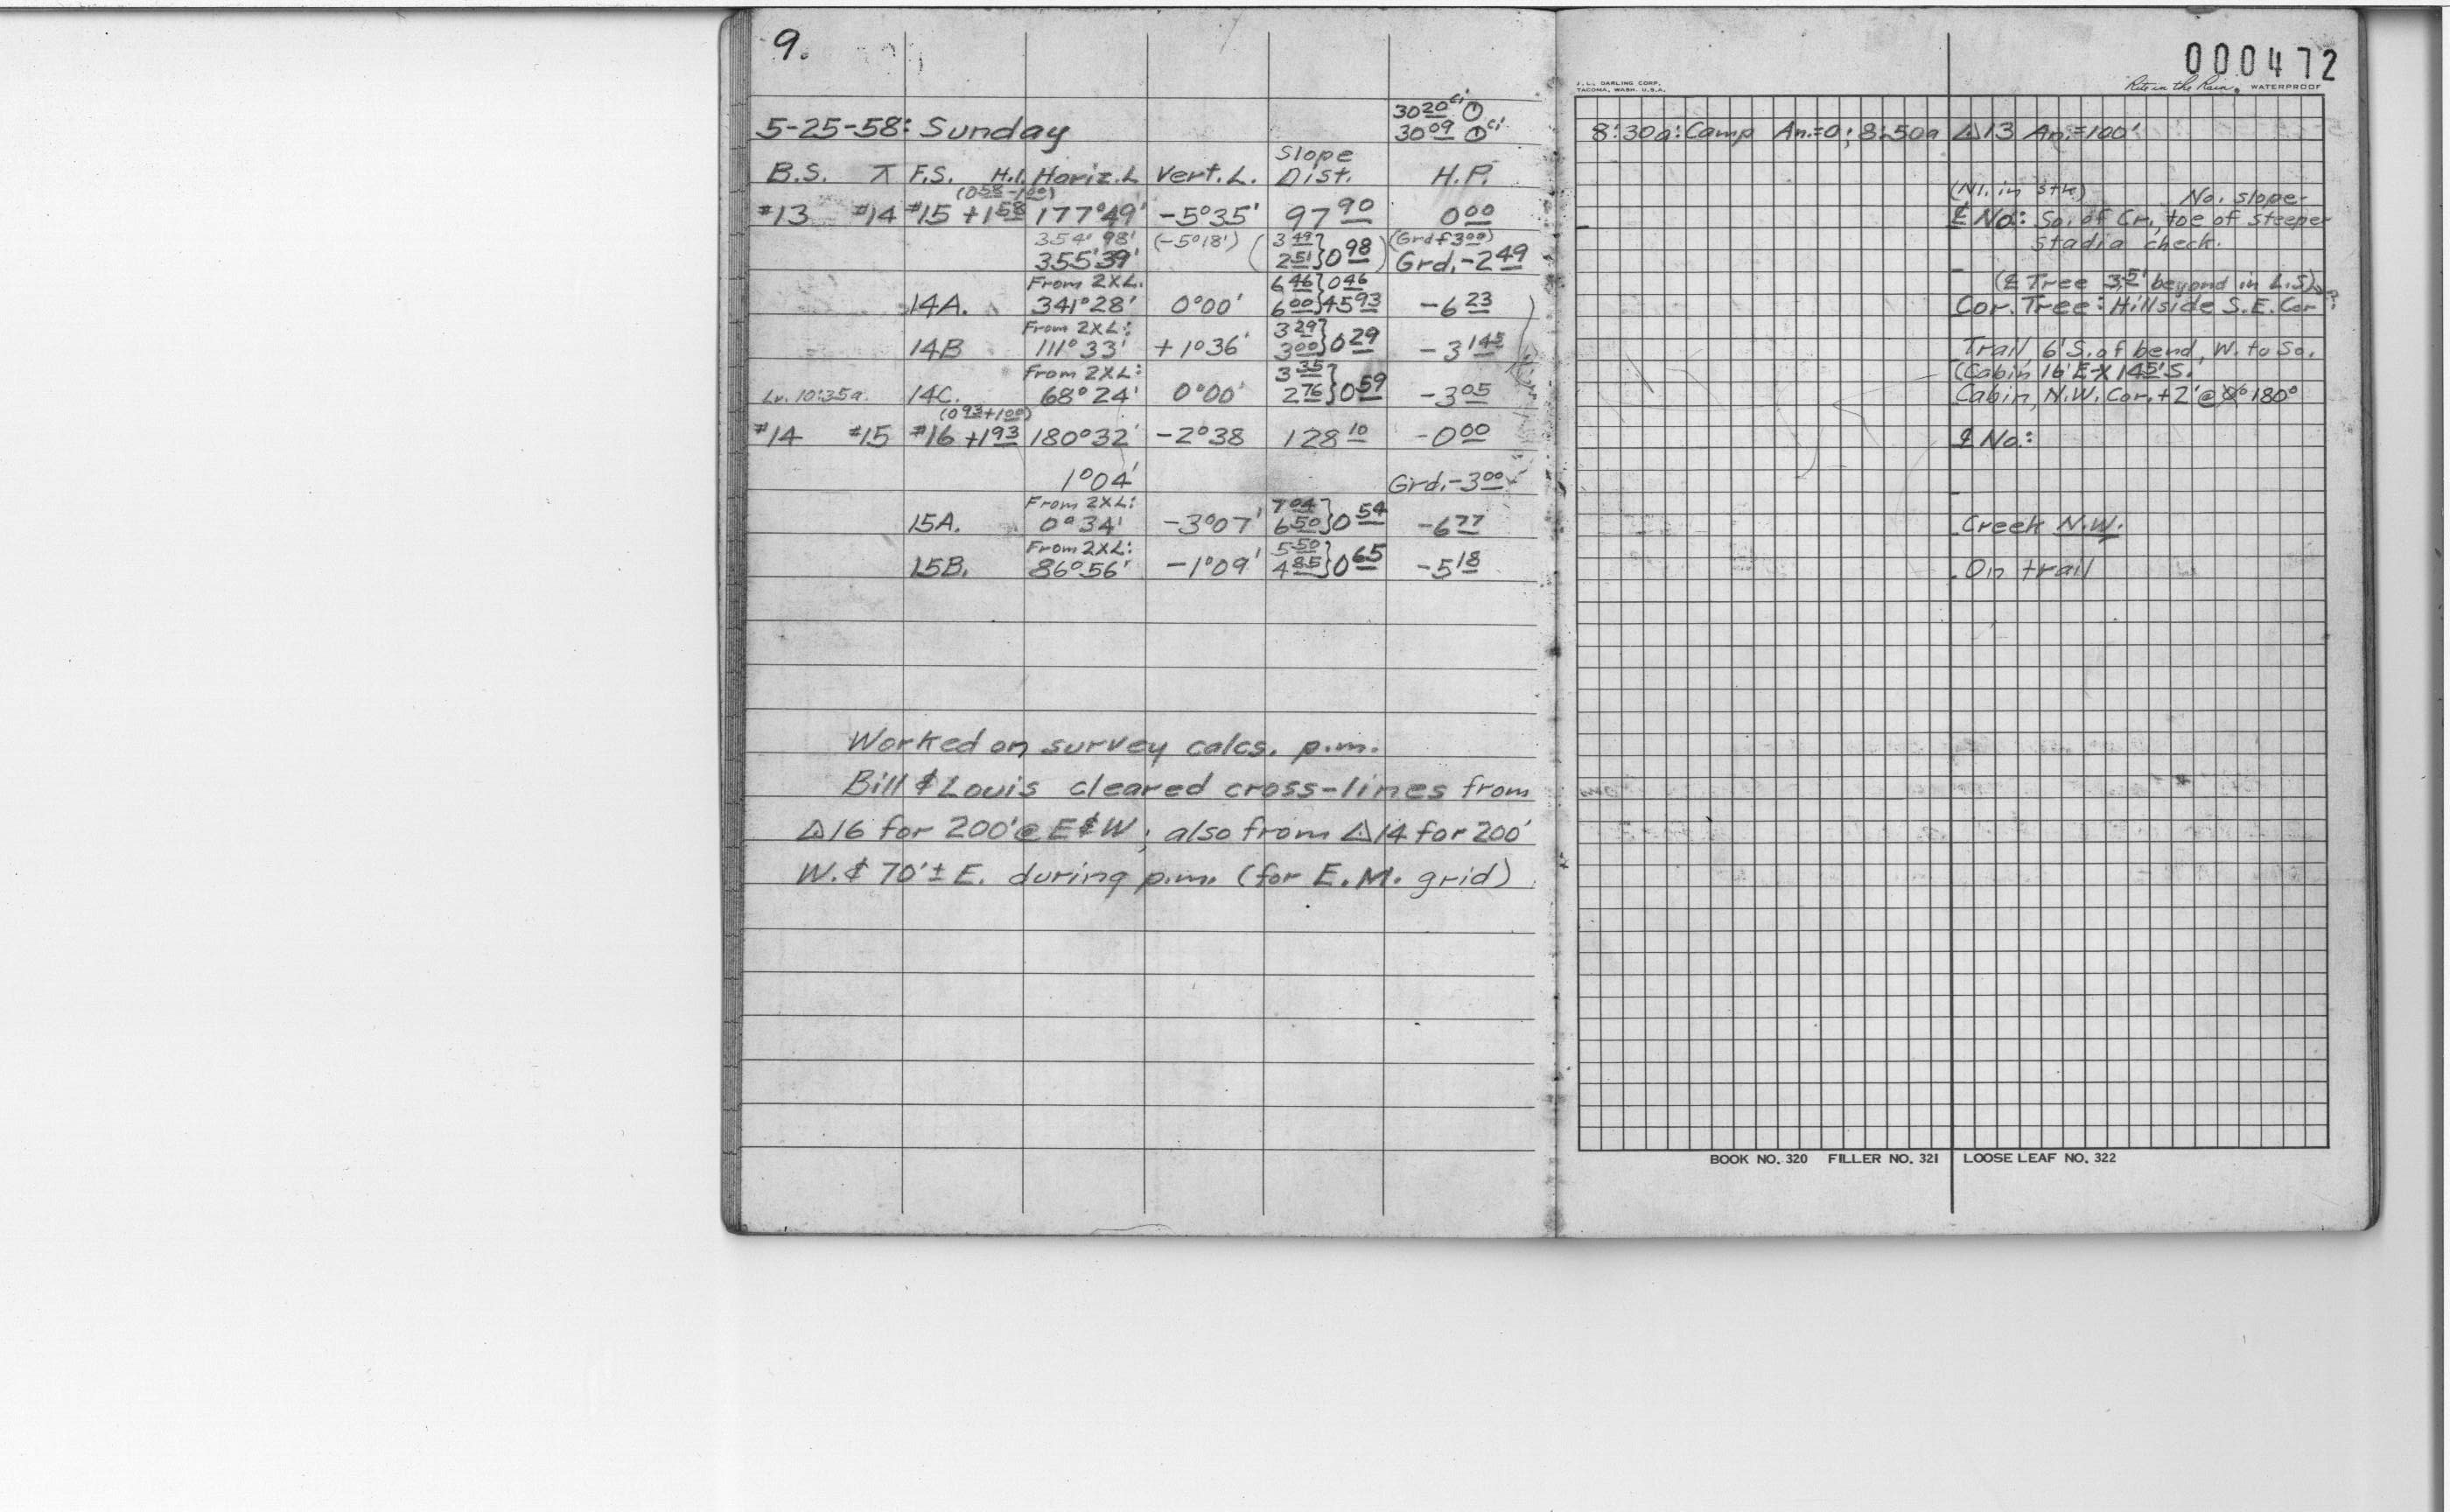 9.
30 20 ci
5-25-58: Sunday 30 09 ci
B.S. ⊼ F.S. H.I. Horiz. L Vert. L. Slope Dist. H.P.
(0 58 - 1 00)
#13 #14 #15 +1 58 177°49' -5°35' 97 90 0 00
354° 98' (-5°18') (3 49 2 51} 0 98) (Grd + 3 00)
355°39' Grd. -2 49
From 2XL. 6 46} 0 46
14A. 341°28' 0°00' 6 00} 45 93 -6 23
From 2XL: 3 29
14B 111°33' +1°36' 3 00} 0 29 -3 145
From 2XL: 3 35
Lv. 10:35a. 14C. 68°24' 0°00' 2 76} 0 59 -3 05
(0 93 + 1 00)
#14 #15 #16 +1 93 180°32' -2°38 128 10 -0 00
1°04' Grd. -3 00
From 2XL: 7 04
15A. 0°34' -3°07' 6 50} 0 54 -6 77
From 2XL: 5 50
15B. 86°56' -1°09' 4 85} 0 65 -5 18
Worked on survey calcs. p.m.
Bill & Louis cleared cross-lines from
△16 for 200' @ E & W; also from △14 for 200'
W. & 70' ± E. during p.m. (for E.M. grid)
000472
J. L. DARLING CORP.
TACOMA, WASH. U.S.A.
Rite in the Rain WATERPROOF
8:30a: Camp An.=0; 8:50a △13 An.=100'
(N1. in stk) No. slope
℄ No: So. of Cr., toe of steeper
stadia check.
(℄ Tree 3.5' beyond in L.S.)
Cor. Tree: Hillside S.E. Cor
Trail, 6' S. of bend, W. to So.
(Cabin 16' E-X 14.5' S.
Cabin, N.W. Cor. +2' @ 180°
℄ No.:
Creek N.W.
On trail
BOOK NO. 320 FILLER NO. 321 LOOSE LEAF NO. 322